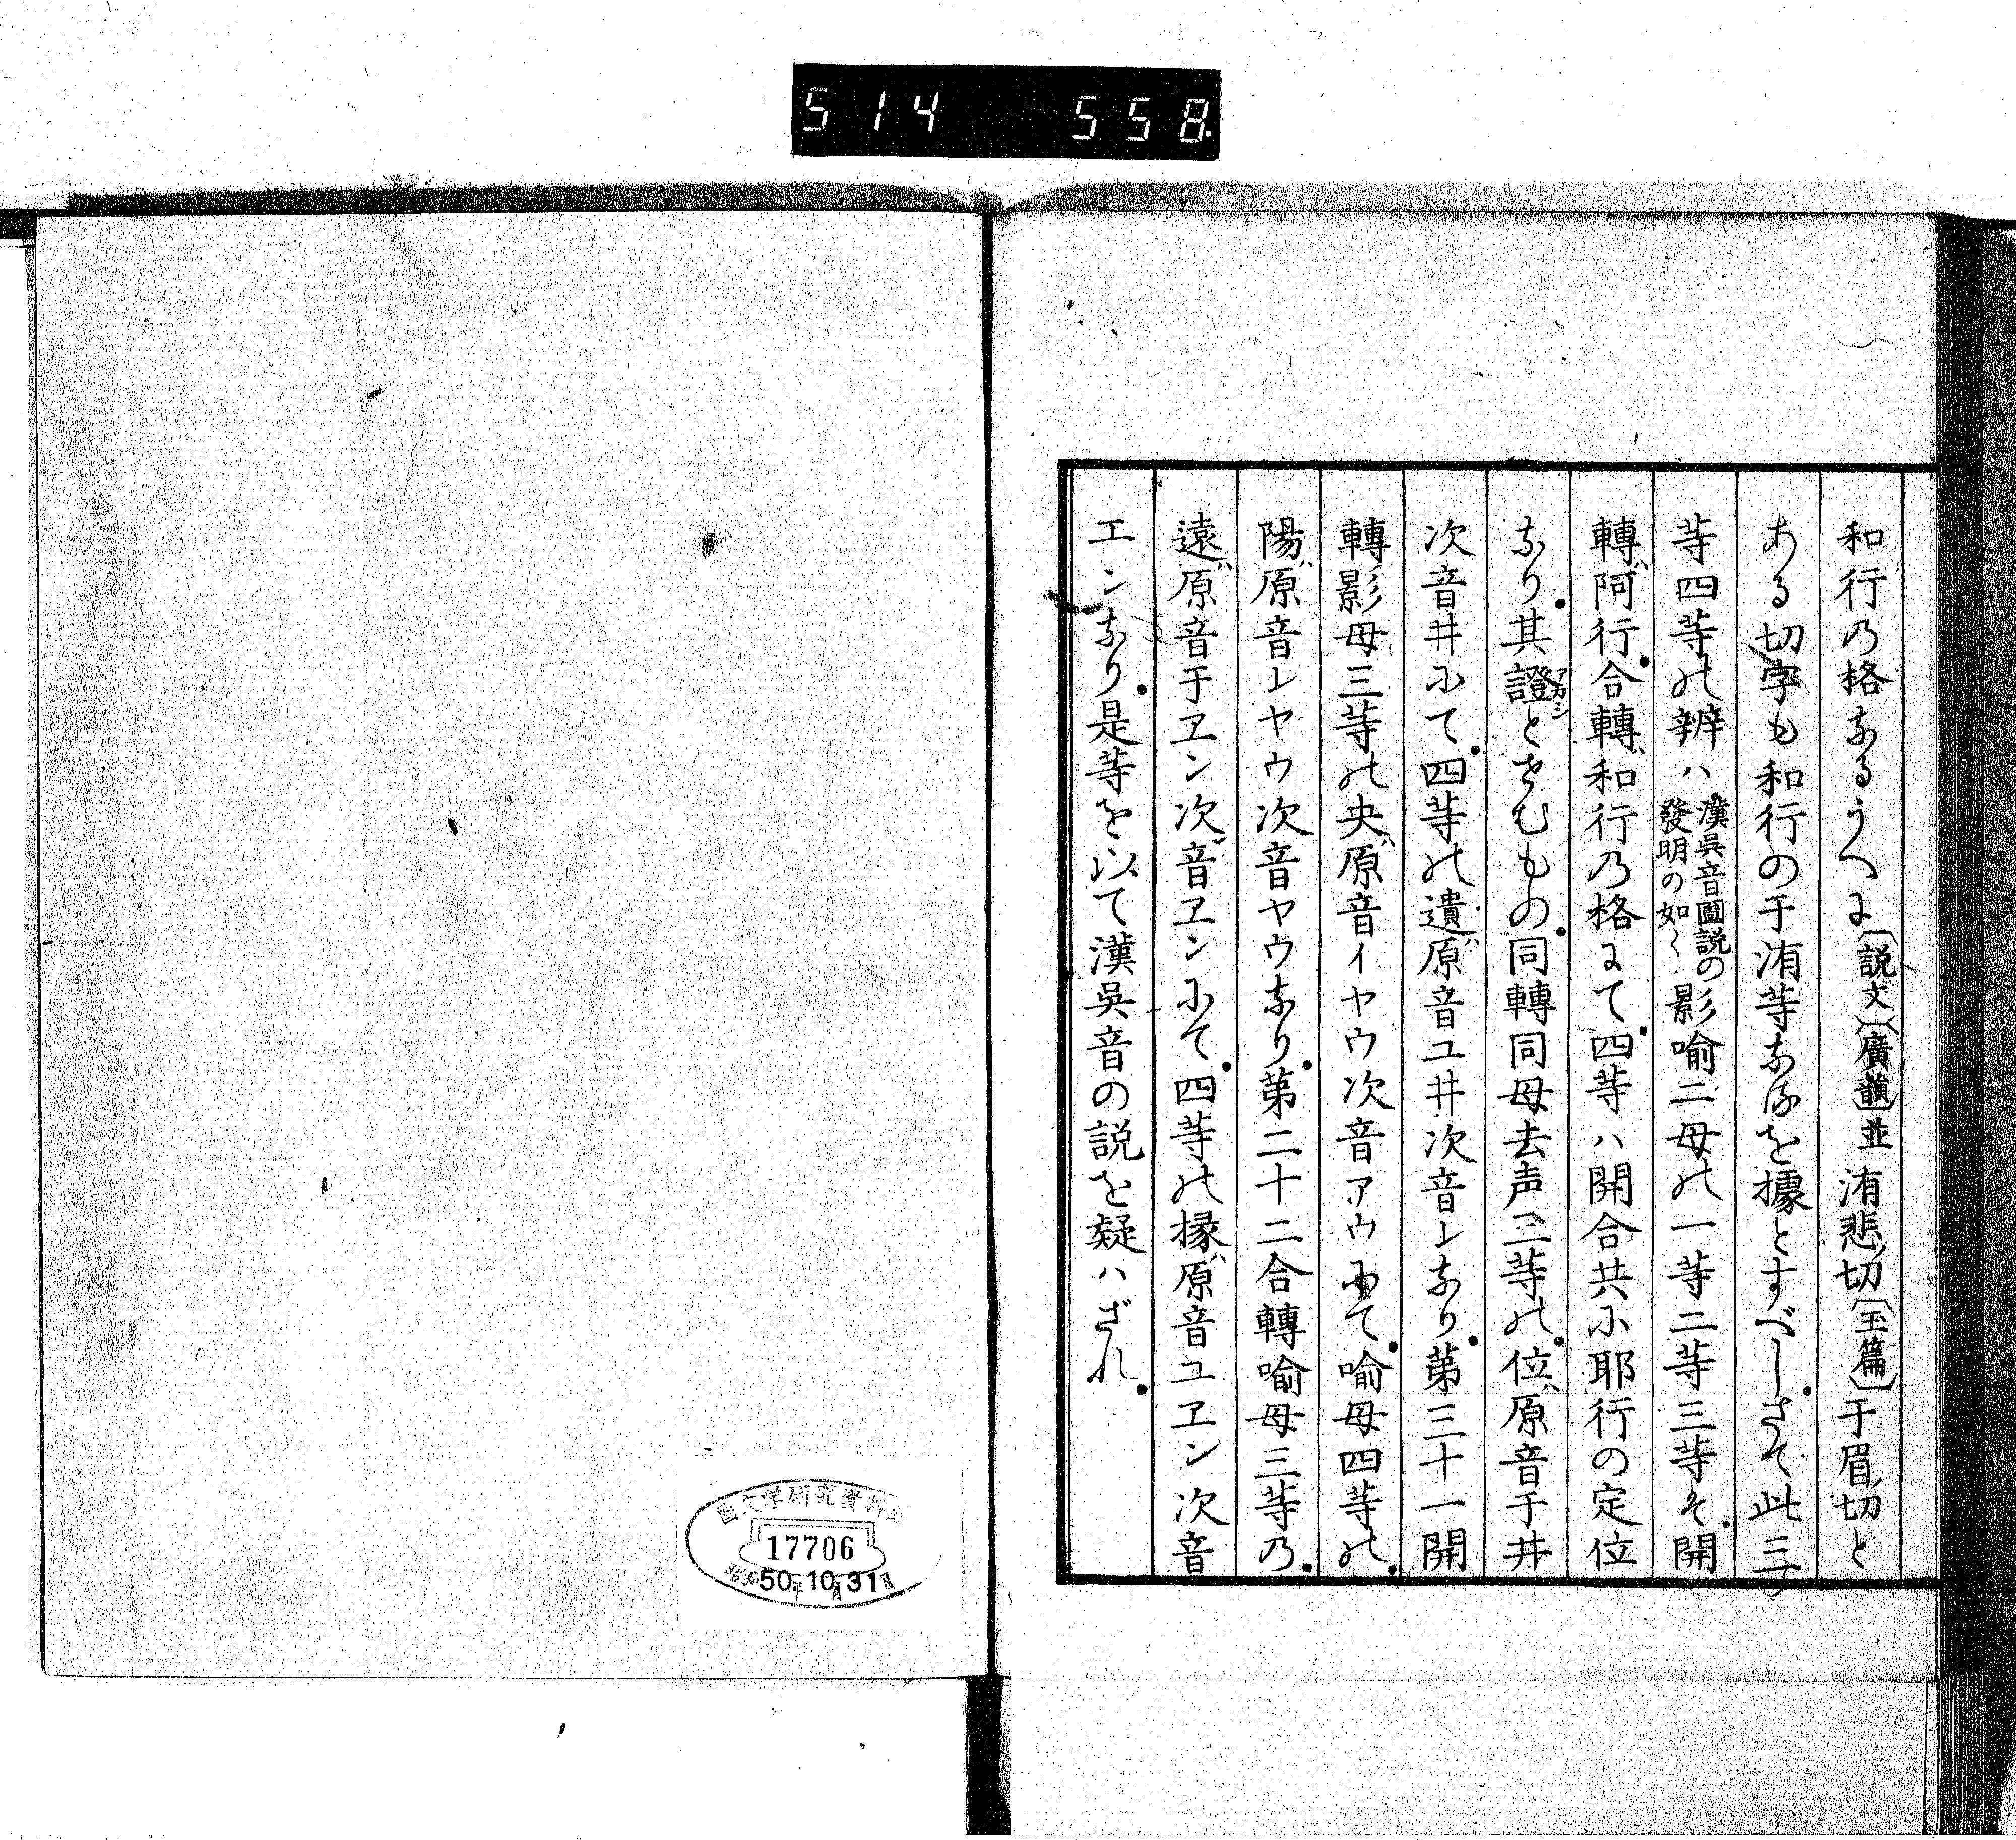 514 558.
和行乃格なるうへに〔説文〕〔廣韻〕並洧悲ノ切〔玉篇〕于眉ノ切と
ある切字も和行の于洧等なるを據とすべしさて此三
等四等の辨ハ漢吳音圖説の
發明の如く影喩二母の一等二等三等そ開
轉ハ阿行合轉ハ和行乃格にて四等ハ開合共に耶行の定位
なり其證アカシとせむもの同轉同母去声三等の位ハ原音于井
次音井にて四等の遺ハ原音ユ井次音レなり第三十一開
轉影母三等の央ハ原音イヤウ次音アウにて喩母四等の
陽ハ原音レヤウ次音ヤウなり第二十二合轉喩母三等乃
遠ハ原音于ヱン次音ヱンにて四等の緣ハ原音ユヱン次音
エンなり是等を以て漢吳音の説を疑ハざれ
國文学研究資料館
17706
昭和50年10月31日